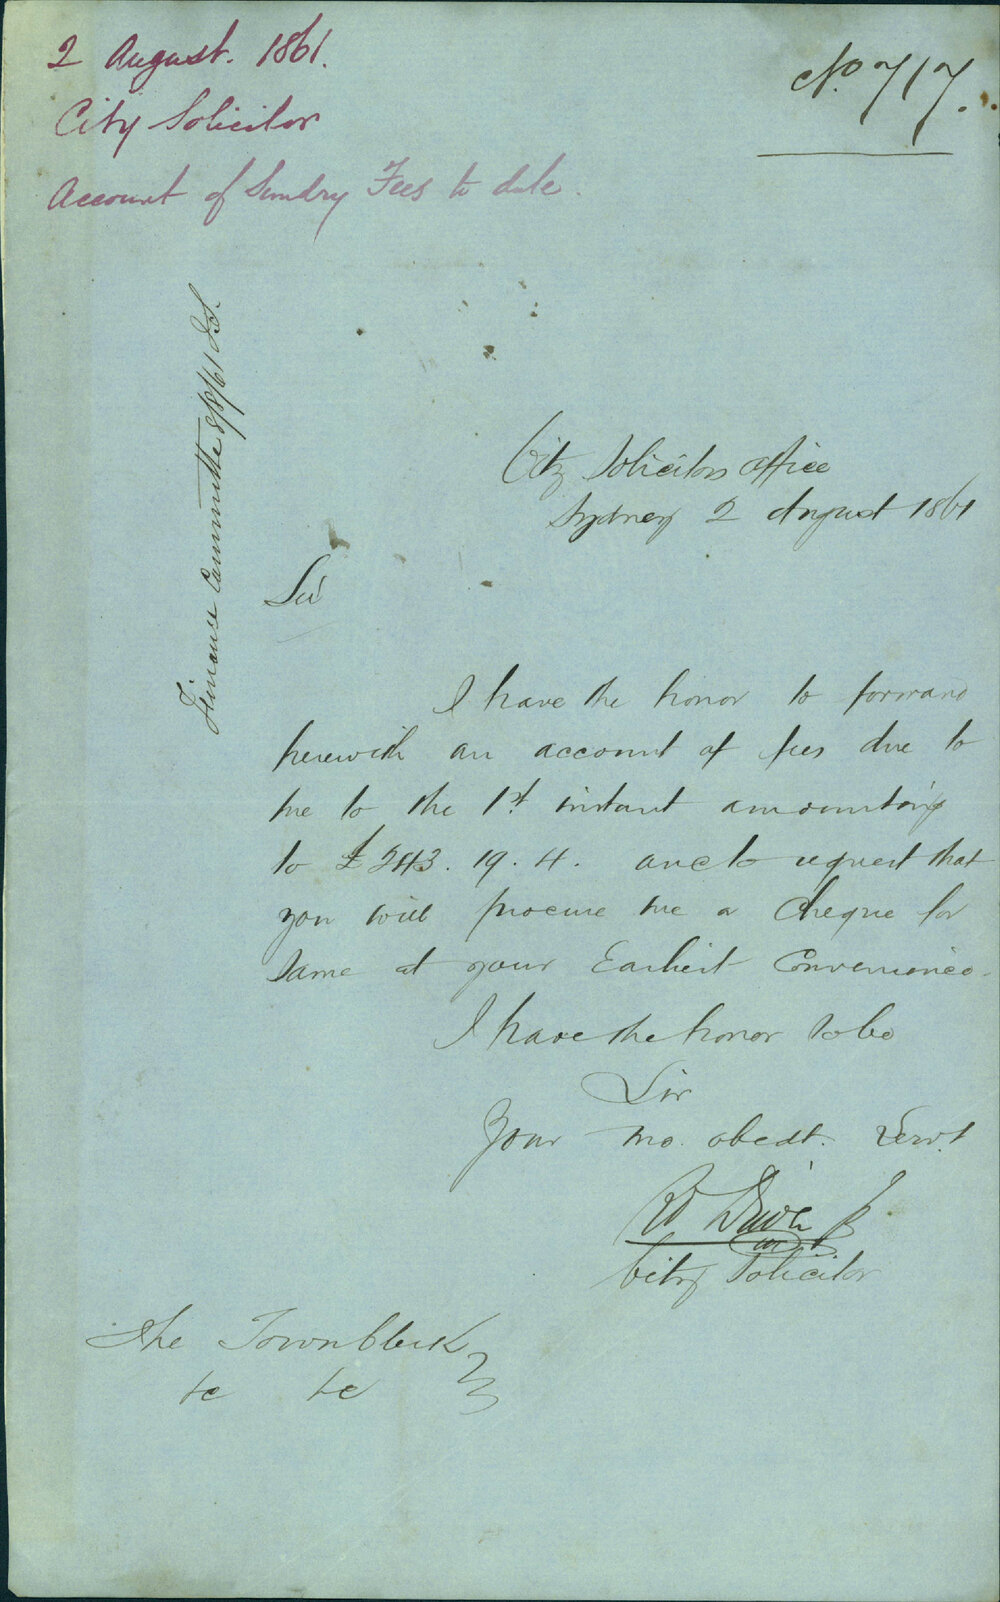 2 August. 1861.
City Solicitor
Account of Sundry Fees to date.
No. 717.
Finance Committee 8/8/61
City Solicitors Office
Sydney 2 August 1861
Sir
I have the honor to forward
herewith an account of fees due to
me to the 1st. instant amounting
to £243. 19. 4. and to request that
you will procure me a Cheque for
same at your Earliest Convenience.
I have the honor to be
Sir
Your mo. obedt. Servt
City Solicitor
The Town Clerk
&c &c